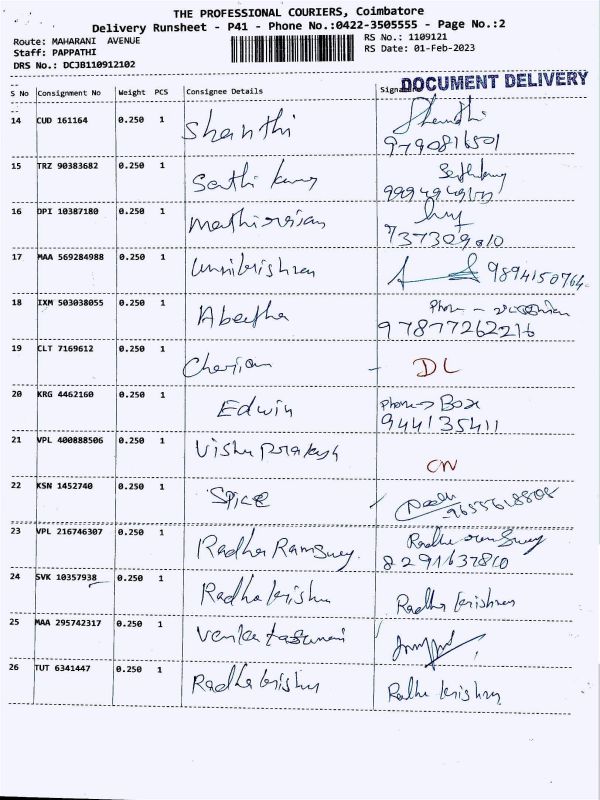 THE PROFESSIONAL COURIERS, Coimbatore
Delivery Runsheet - P41 - Phone No.:0422-3505555 - Page No.:2
Route: MAHARANI AVENUE
Staff: PAPPATHI
DRS No.: DCJB110912102
RS No.: 1109121
RS Date: 01-Feb-2023
DOCUMENT DELIVERY
S No Consignment No Weight PCS Consignee Details
14 CUD 161164 0.250 1 Shanthi
9790816501
15 TRZ 90383682 0.250 1
16 DPI 10387180 0.250 1
17 MAA 569284988 0.250 1 Unnikrishnan 9894150764
18 IXM 503038055 0.250 1 Abeetha Phone
97877262216
19 CLT 7169612 0.250 1 Cherian DL
20 KRG 4462160 0.250 1 Edwin Phone → Box
944135411
21 VPL 400888506 0.250 1 Vishu prakash CN
22 KSN 1452740 0.250 1 Spice
23 VPL 216746307 0.250 1 Radha Ramswey.
8291637810
24 SVK 10357938 0.250 1 Radha krishn Radha krishnan
25 MAA 295742317 0.250 1
26 TUT 6341447 0.250 1 Radha krishn Radha krishnan